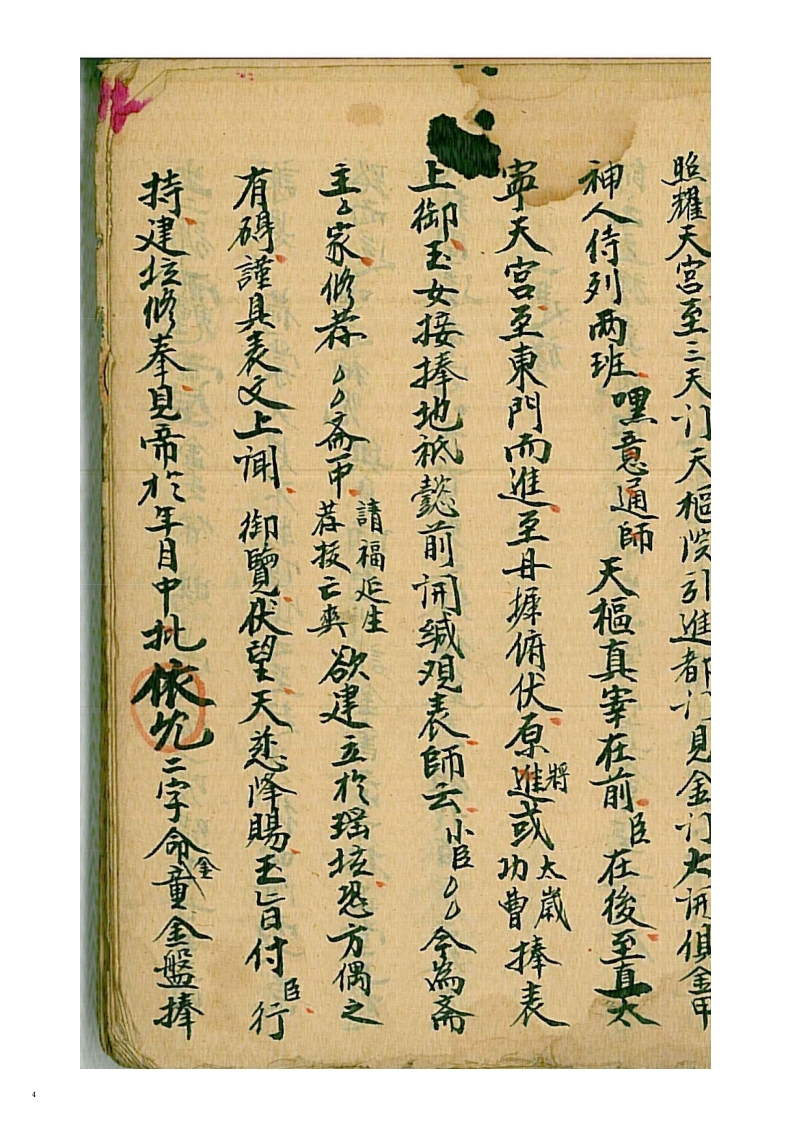 照耀天宮至三天门天樞院引進都门見金门大開俱金甲
神人侍列兩班嘿意通師天樞真宰在前臣在後至直太
寧天宮至東門而進至丹墀俯伏原進將或太歲功曹捧表
上御玉女接捧地祗懿前開緘观表師云小臣〻〻今為斎
主〻家修荐〻〻斎甲請福延生荐拔亡爽欲建立於瑶坛恐方偶之
有碍謹具表文上聞御覽伏望天慈降賜玉旨付臣行
持建坛修奉見帝於年月中批依允二字命金童金盤捧
4